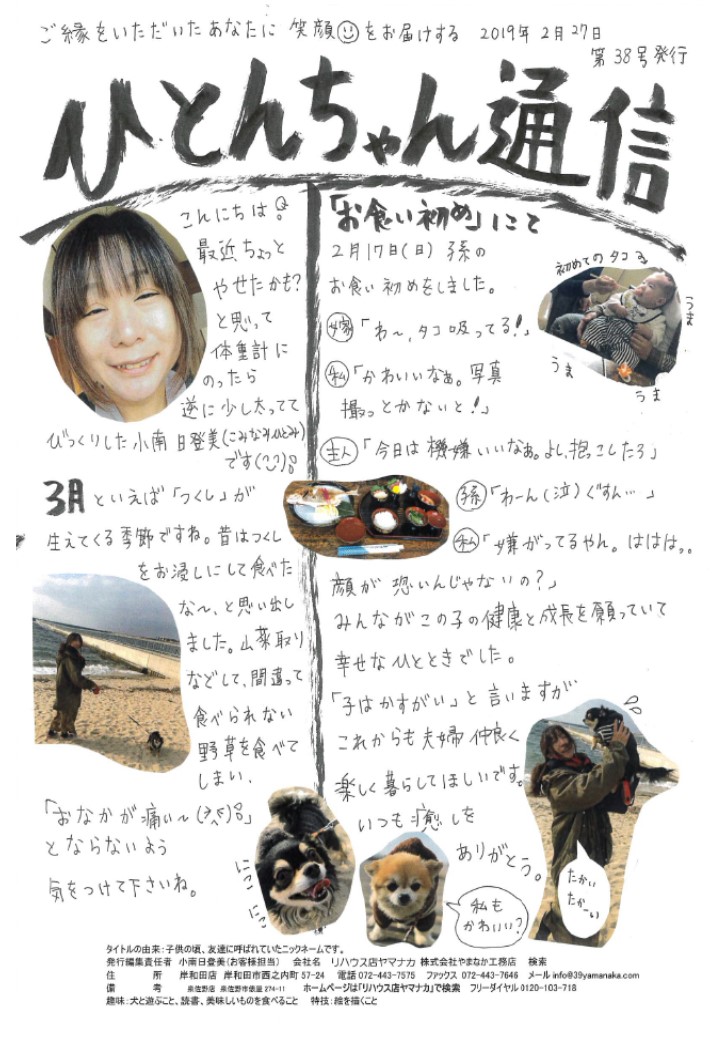 ご縁をいただいたあなたに 笑顔をお届けする 2019年2月27日
第38号発行
ひとんちゃん通信
こんにちは。
最近ちょっと
やせたかも?
と思って
体重計に
のったら
逆に少し太ってて
びっくりした小南 日登美(こみなみひとみ)
です(^^)。
3月といえば「つくし」が
生えてくる季節ですね。昔はつくし
をお浸しにして食べた
な〜、と思い出し
ました。山菜取り
などして、間違って
食べられない
野草を食べて
しまい、
「おなかが痛い〜
とならないよう
気をつけて下さいね。
にこ
にこ
「お食い初め」にて
2月17日(日) 孫の
お食い初めをしました。
初めてのタコ
うま
うま
うま
嫁「わ〜、タコ吸ってる!」
私「かわいいなぁ。写真
撮っとかないと!」
主人「今日は機嫌いいなぁ。よし、抱っこしたろ」
孫「わーん(泣)ぐすん…」
私「嫌がってるやん。ははは。
顔が恐いんじゃないの?」
みんながこの子の健康と成長を願っていて
幸せなひとときでした。
「子はかすがい」と言いますが
これからも夫婦仲良く
楽しく暮らしてほしいです。
いつも癒しを
ありがとう。
私も
かわいい?
たかい
たかーい
タイトルの由来:子供の頃、友達に呼ばれていたニックネームです。
発行編集責任者 小南日登美(お客様担当) 会社名 リハウス店ヤマナカ 株式会社やまなか工務店 検索
住 所 岸和田店 岸和田市西之内町57-24 電話072-443-7575 ファックス 072-443-7646 メールinfo@39yamanaka.com
備 考 泉佐野店 泉佐野市俵屋274-11 ホームページは「リハウス店ヤマナカ」で検索 フリーダイヤル0120-103-718
趣味:犬と遊ぶこと、読書、美味しいものを食べること 特技:絵を描くこと